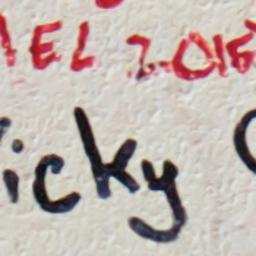 AEL 2015
icky